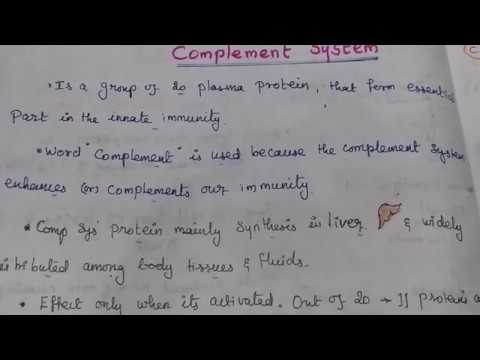 Complement System
• Is a group of 20 plasma protein, that form essential
Part in the innate immunity.
• Word "Complement" is used because the complement system
enhances (or) complements our immunity.
• Comp Sys protein mainly Synthesis in liver & widely
tributed among body tissues & fluids.
• Effect only when its activated. Out of 20 → 11 protein